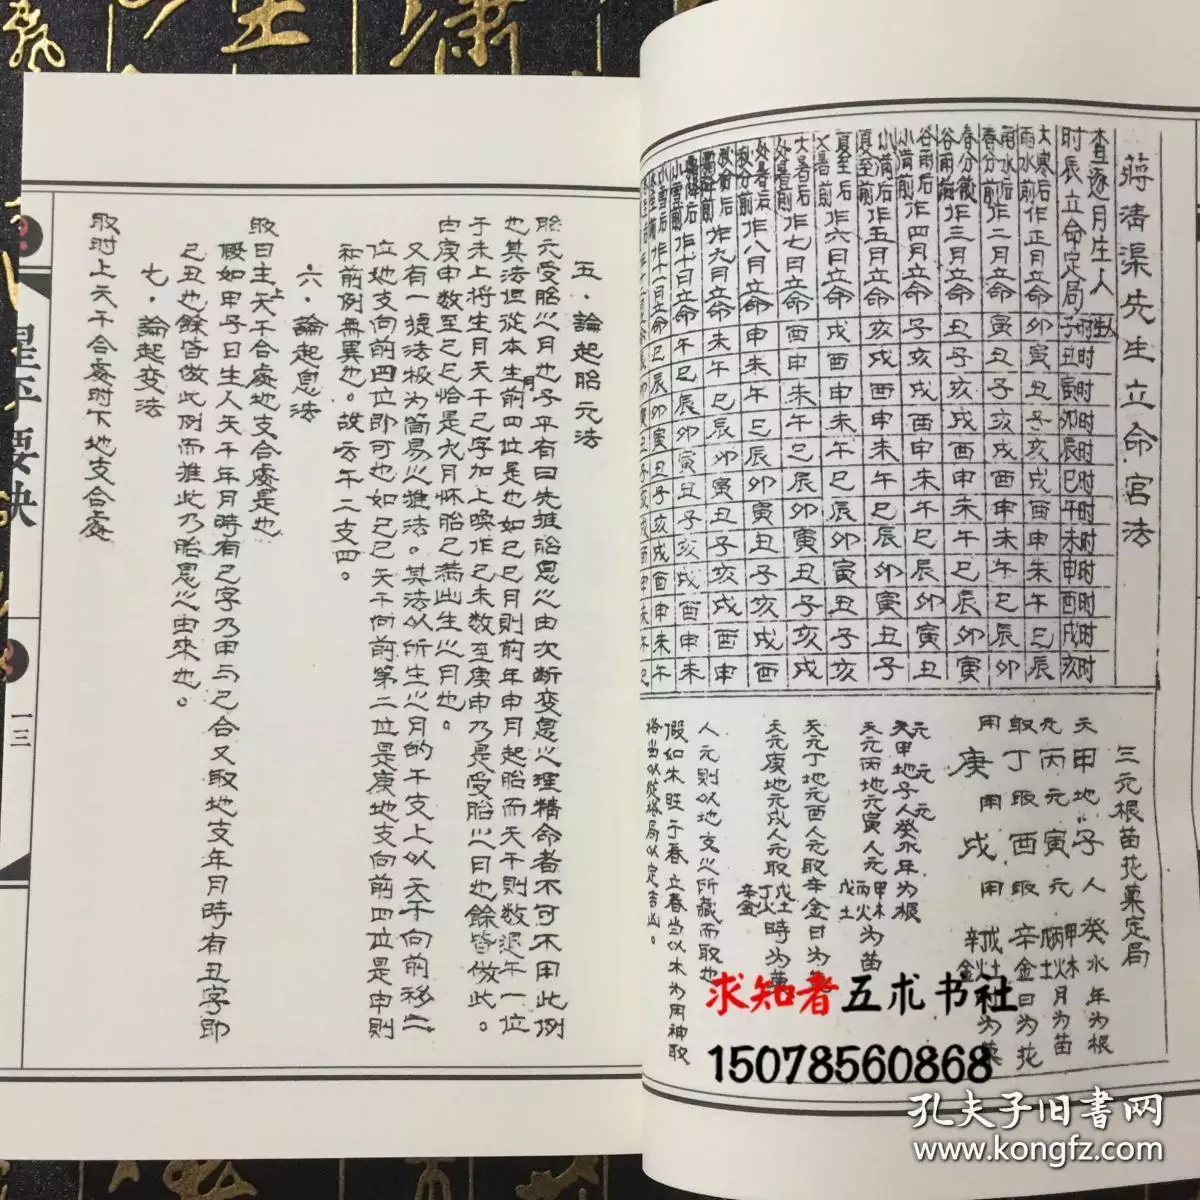 蔣清渠先生立命宮法
查逐月生人
时辰立命定局
子时
丑时
寅时
卯时
辰时
巳时
午时
未时
申时
酉时
戌时
亥时
大寒后雨水前作正月立命 卯 寅 丑 子 亥 戌 酉 申 未 午 巳 辰
雨水后春分前作二月立命 寅 丑 子 亥 戌 酉 申 未 午 巳 辰 卯
作三月立命 丑 子 亥 戌 酉 申 未 午 巳 辰 卯 寅
谷雨后小满前作四月立命 子 亥 戌 酉 申 未 午 巳 辰 卯 寅 丑
小满后夏至前作五月立命 亥 戌 酉 申 未 午 巳 辰 卯 寅 丑 子
夏至后大暑前作六月立命 戌 酉 申 未 午 巳 辰 卯 寅 丑 子 亥
大暑后处暑前作七月立命 酉 申 未 午 巳 辰 卯 寅 丑 子 亥 戌
作八月立命 申 未 午 巳 辰 卯 寅 丑 子 亥 戌 酉
作九月立命 未 午 巳 辰 卯 寅 丑 子 亥 戌 酉 申
三元根苗花菓定局
天甲地子人癸水年为根
元丙元寅元
月为苗
取丁取酉取辛金日为花
用庚用戌用
元 元 元
天甲地子人癸水年为根
天元丙地元寅人元甲木丙火戊土为苗
天元丁地元酉人元取辛金日为花
天元庚地元戌人元取戊土丁火辛金時为菓
人元則以地支之所藏而取也
假如木旺于春立春当以木为用神取
格当以從格局以定吉凶。
五·論起胎元法
胎元受胎之月也子平有曰先推胎息之由次断变息之理精命者不可不用此例
也其法但從本生月前四位是也如己巳月則前年申月起胎而天干則数退午一位
于未上将生月天干己字加上唤作己未数至庚申乃是受胎之日也餘皆倣此。
由庚申数至己巳恰是九月怀胎已满此生之月也。
又有一捷法极为简易之推法。其法以所生之月的干支上以天干向前移二
位地支向前四位即可也如己巳天干向前第二位是庚地支向前四位是申則
和前例無異也。故云干二支四。
六·論起息法
取日主天干上合處地支合處是也
假如甲子日生人天干年月時有己字乃甲与己合又取地支年月時有丑字即
己丑也餘皆倣此例而推此乃胎息之由來也。
七·論起变法
取时上天干合處时下地支合處
星平要訣
一三
求知者五术书社
15078560868
孔夫子旧书网
www.kongfz.com